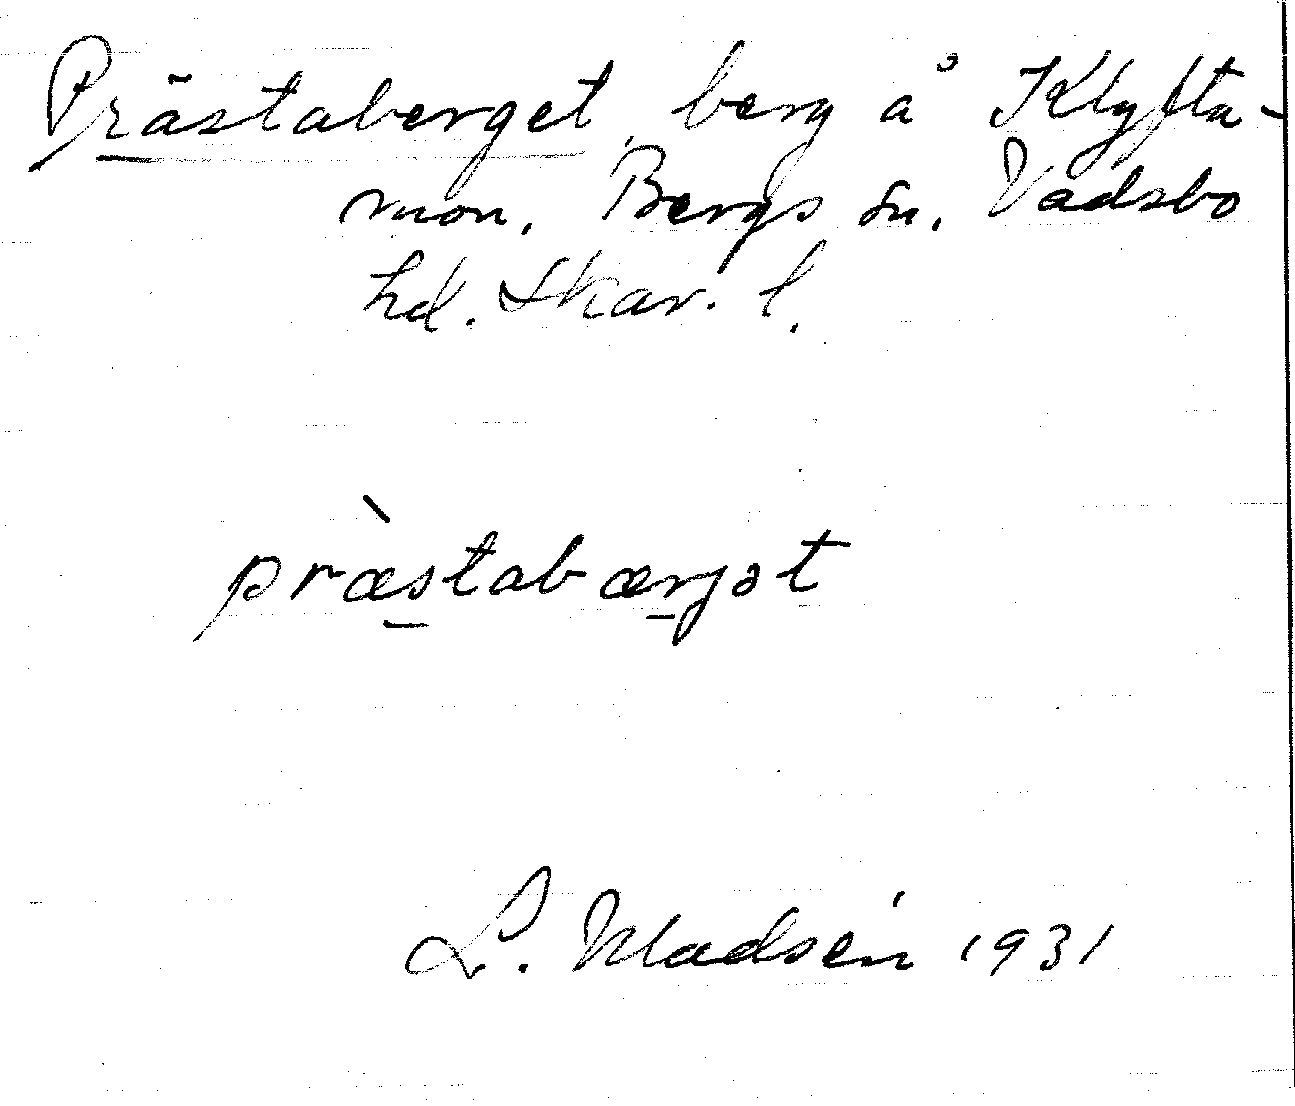 Prästaberget, berg å Klyfta-
mon. Bergs sn. Vadsbo
hd. Skar. l.
præ̀stabærjət
L. Madsén 1931